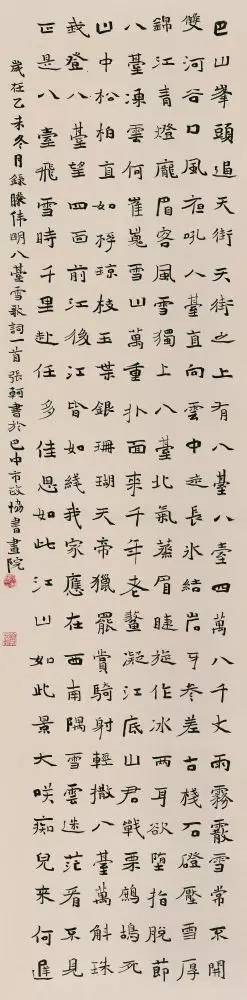 巴山峯頭追天街天街之上有八臺八臺四萬八千丈雨霧霰雪常不開
雙河谷口風夜吼八臺直向雲中走長氷結岩牙參差古棧石磴壓雪厚
錦江青燈龐眉客風雪獨上八臺北氣蒸眉睫旋作冰兩耳欲墮指脫節
八臺凍雲何崔嵬雪山萬重扑面來千年老鰲凝江底山君戰栗鷓鴣死
山中松柏直如梓琼枝玉葉銀珊瑚天帝獵罷賞騎射輕撒八臺萬斛珠
我登八臺望四面前江後江皆如綫我家應在西南隅雪雲迷茫看不見
正是八臺飛雪時千里赴任多佳思如此江山如此景大咲痴兒來何遲
歲在乙未冬月錄滕偉明八臺雪歌詞一首張軻書於巴中市政協書畫院